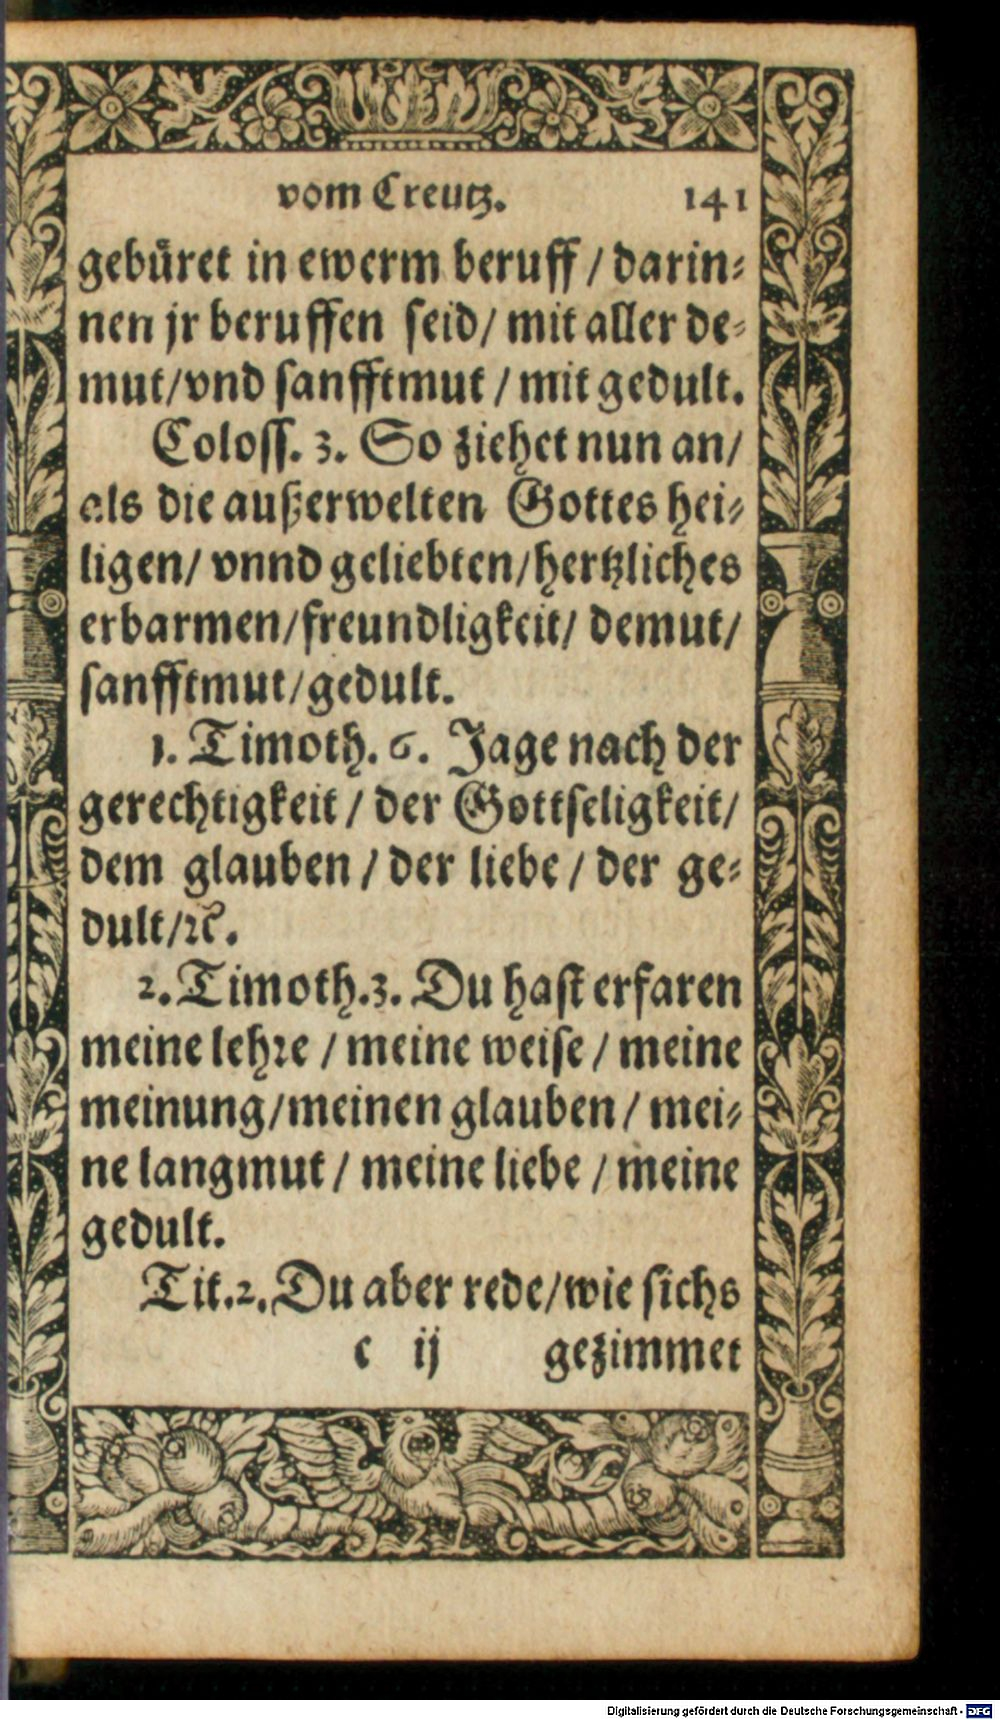 vom Creutz. 141
gebüret in ewerm beruff / darin⸗
nen jr beruffen seid/ mit aller de⸗
mut/vnd sanfftmut / mit gedult.
Coloss. 3. So ziehet nun an/
als die außerwelten Gottes hei⸗
ligen/ vnnd geliebten/hertzliches
erbarmen/freundligkeit/ demut/
sanfftmut/gedult.
1. Timoth. 6. Jage nach der
gerechtigkeit / der Gottseligkeit/
dem glauben / der liebe / der ge⸗
dult/ꝛc̃.
2. Timoth.3. Du hast erfaren
meine lehre / meine weise / meine
meinung/meinen glauben/ mei⸗
ne langmut / meine liebe / meine
gedult.
Tit.2. Du aber rede/wie sichs
c ij gezimmet
Digitalisierung gefördert durch die Deutsche Forschungsgemeinschaft - DFG